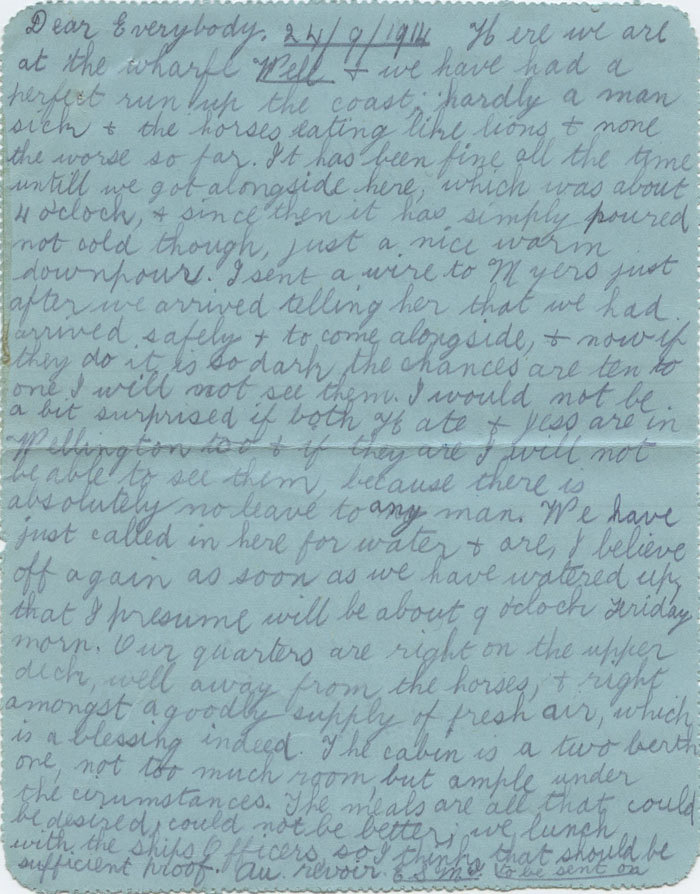 Dear Everybody. 24/9/1914 Here we are
at the wharf Well & we have had a
perfect run up the coast; hardly a man
sick & the horses eating like lions & none
the worse so far. It has been fine all the time
untill we got alongside here, which was about
4 oclock, & since then it has simply poured
not cold though, just a nice warm
downpour. I sent a wire to Myers just
after we arrived telling her that we had
arrived safely & to come alongside, & now if
they do it is so dark the chances are ten to
one I will not see them. I would not be
a bit surprised if both Kate & Jess are in
Wellington too & if they are I will not
be able to see them, because there is
absolutely no leave to any man. We have
just called in here for water & are, I believe
off again as soon as we have watered up,
that I presume will be about 9 oclock Friday
morn. Our quarters are right on the upper
deck, well away from the horses, & right
amongst a goodly supply of fresh air, which
is a blessing indeed. The cabin is a two berth
one, not too much room, but ample under
the cirumstances. The meals are all that could
be desired, could not be better; we lunch
with the ships Officers so I think that should be
sufficient proof. Au. revoir. to be sent on